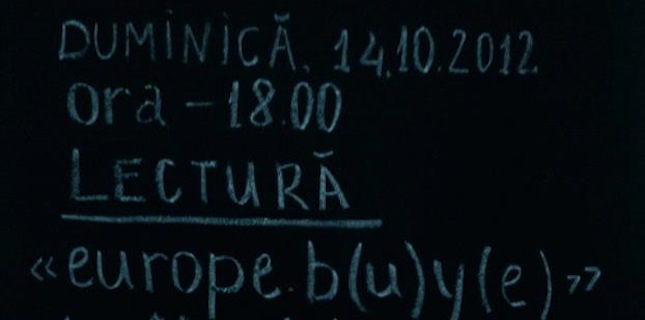 DUMINICĂ, 14.10.2012
Ora – 18.00
LECTURĂ
«europe.b(u)y(e)»